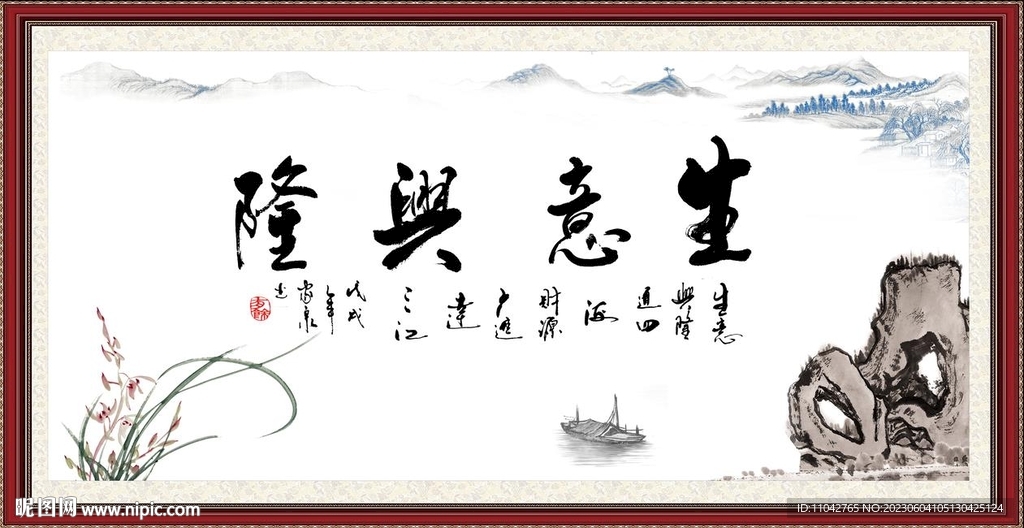 生意興隆
生意
興隆
通四
海
財源
广進
達
三江
戊戌
年
家泉
书
昵图网 www.nipic.com
ID:11042765 NO:20230604105130425124